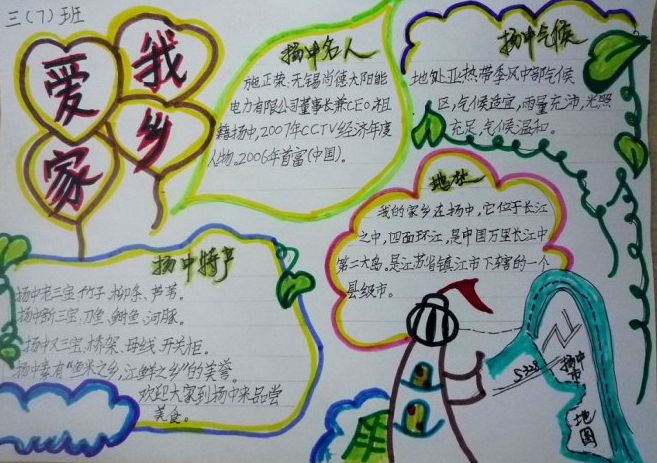 三（7）班
我爱家乡
扬中名人
施正荣:无锡尚德太阳能
电力有限公司董事长兼CEO。祖
籍扬中,2007年CCTV经济年度
人物。2006年首富(中国)。
扬中气候
地处亚热带季风中部气候
区,气候适宜,雨量充沛,光照
充足,气候温和。
地址
我的家乡在扬中,它位于长江
之中,四面环江,是中国万里长江中
第二大岛。是江苏省镇江市下辖的一个
县级市。
扬中特产
扬中老三宝,竹子、柳条、芦苇。
扬中新三宝、刀鱼、鮰鱼、河豚。
扬中又三宝、桥架、母线、开关柜。
扬中素有“鱼米之乡,江鲜之乡”的美誉。
欢迎大家到扬中来品尝
美食。
S238
扬中市
地图